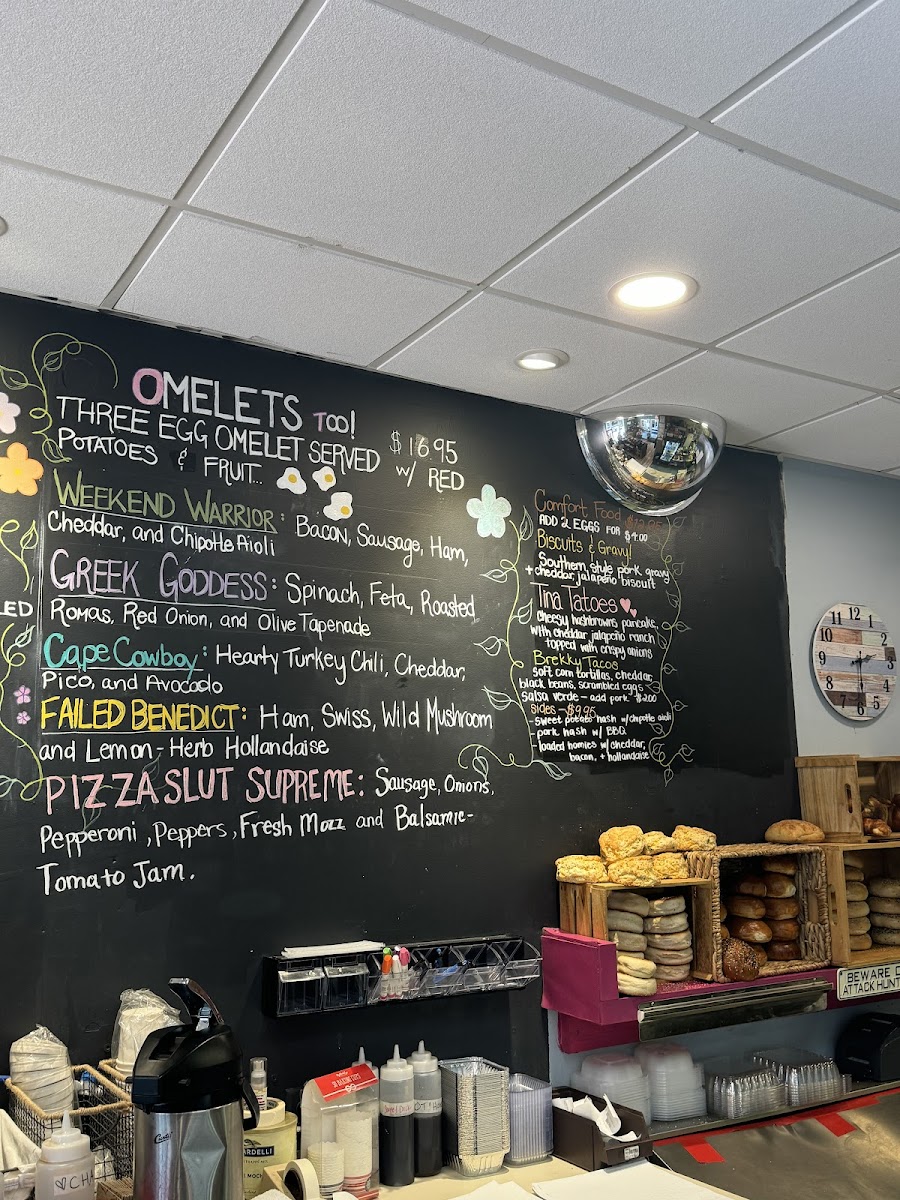 OMELETS TOO!
THREE EGG OMELET SERVED $16.95
W/ RED
POTATOES & FRUIT...
WEEKEND WARRIOR: Bacon, Sausage, Ham,
Cheddar, and Chipotle Aioli
GREEK GODDESS: Spinach, Feta, Roasted
Romas, Red Onion, and Olive Tapenade
Cape Cowboy: Hearty Turkey Chili, Cheddar,
Pico, and Avocado
FAILED BENEDICT: Ham, Swiss, Wild Mushroom
and Lemon-Herb Hollandaise
PIZZA SLUT SUPREME: Sausage, Onions,
Pepperoni, Peppers, Fresh Mozz and Balsamic-
Tomato Jam.
LED
Comfort Food
ADD 2 EGGS FOR $4.00
Biscuits & Gravy!
Southern style pork gravy
+ cheddar, jalapeño biscuit
Tina Tatoes
cheesy hashbrowns pancake,
with cheddar jalapeño ranch
topped with crispy onions
Brekky Tacos
soft corn tortillas, cheddar,
black beans, scrambled eggs
salsa verde - add pork $2.00
sides - $9.95
- sweet potato hash w/chipotle aioli
- pork hash w/ BBQ
- loaded homies w/ cheddar,
bacon, + hollandaise
12 1 2 3 6 7 8 9 10 11
BEWARE
ATTACK HUNT